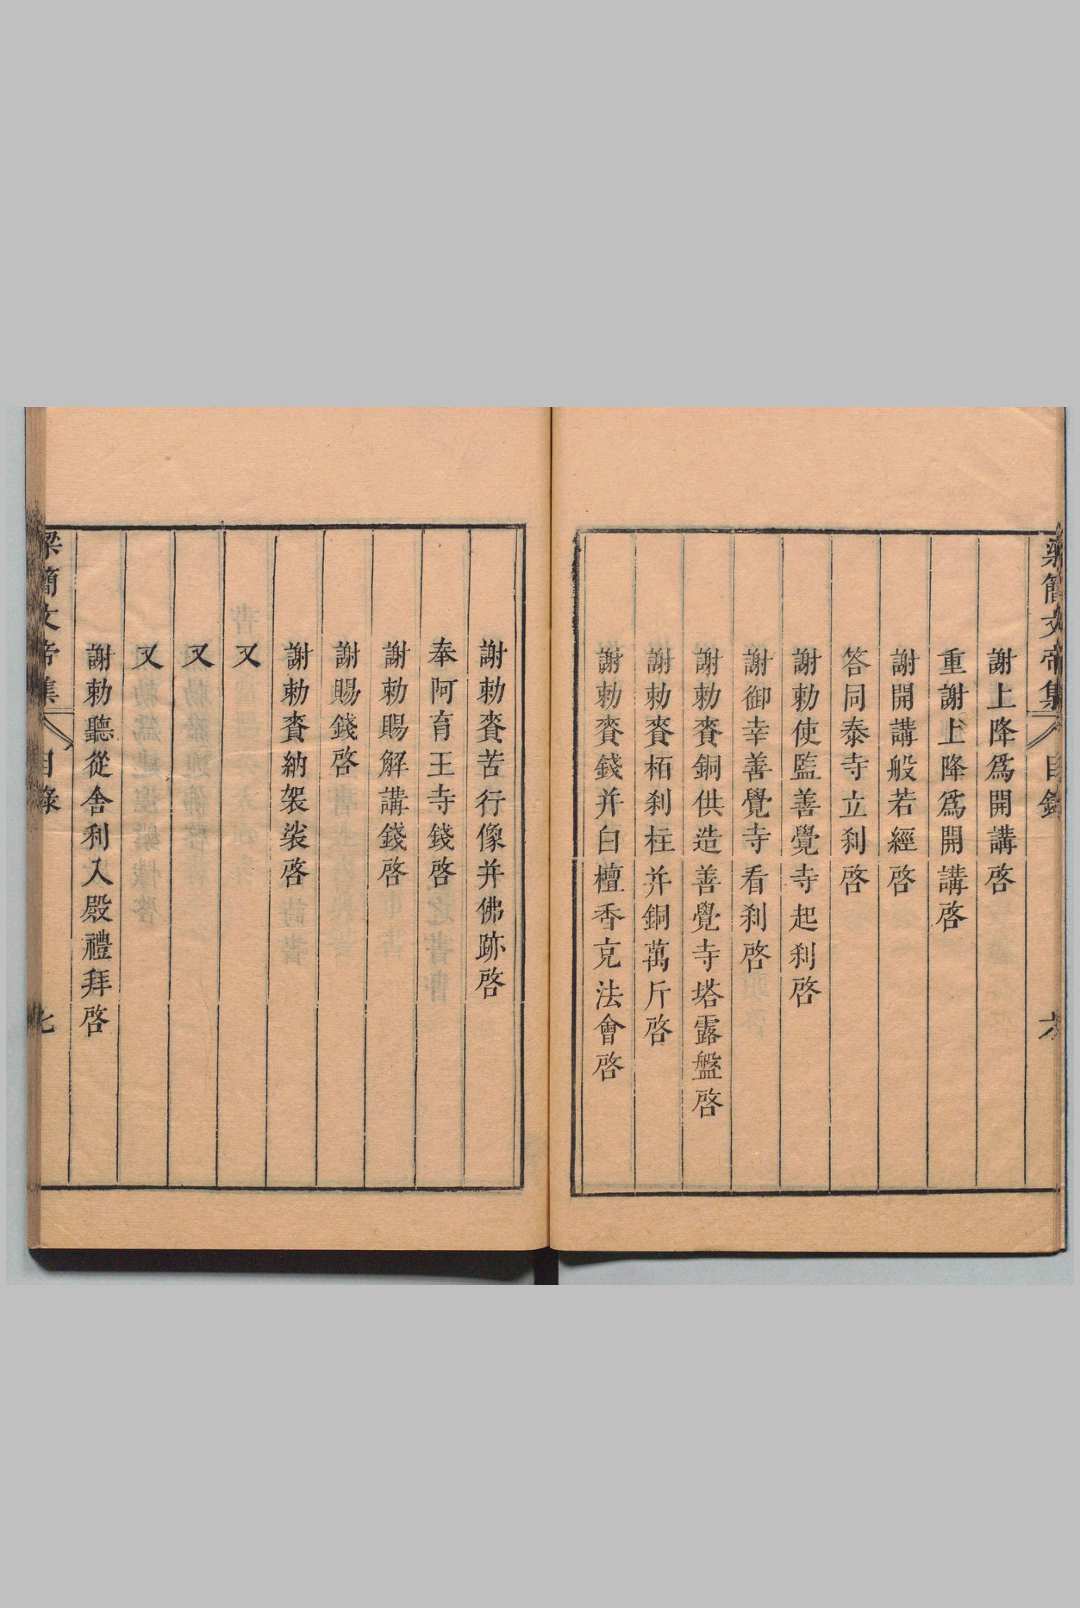 梁簡文帝集 目錄 六
謝上降爲開講啓
重謝上降爲開講啓
謝開講般若經啓
答同泰寺立刹啓
謝勅使監善覺寺起刹啓
謝御幸善覺寺看刹啓
謝勅賚銅供造善覺寺塔露盤啓
謝勅賚栢刹柱并銅萬斤啓
謝勅賚錢并白檀香克法會啓
謝勅賚苦行像并佛跡啓
奉阿育王寺錢啓
謝勅賜解講錢啓
謝賜錢啓
謝勅賚納袈裟啓
又
又
又
謝勅聽從舍利入殿禮拜啓
梁簡文帝集 目錄 七